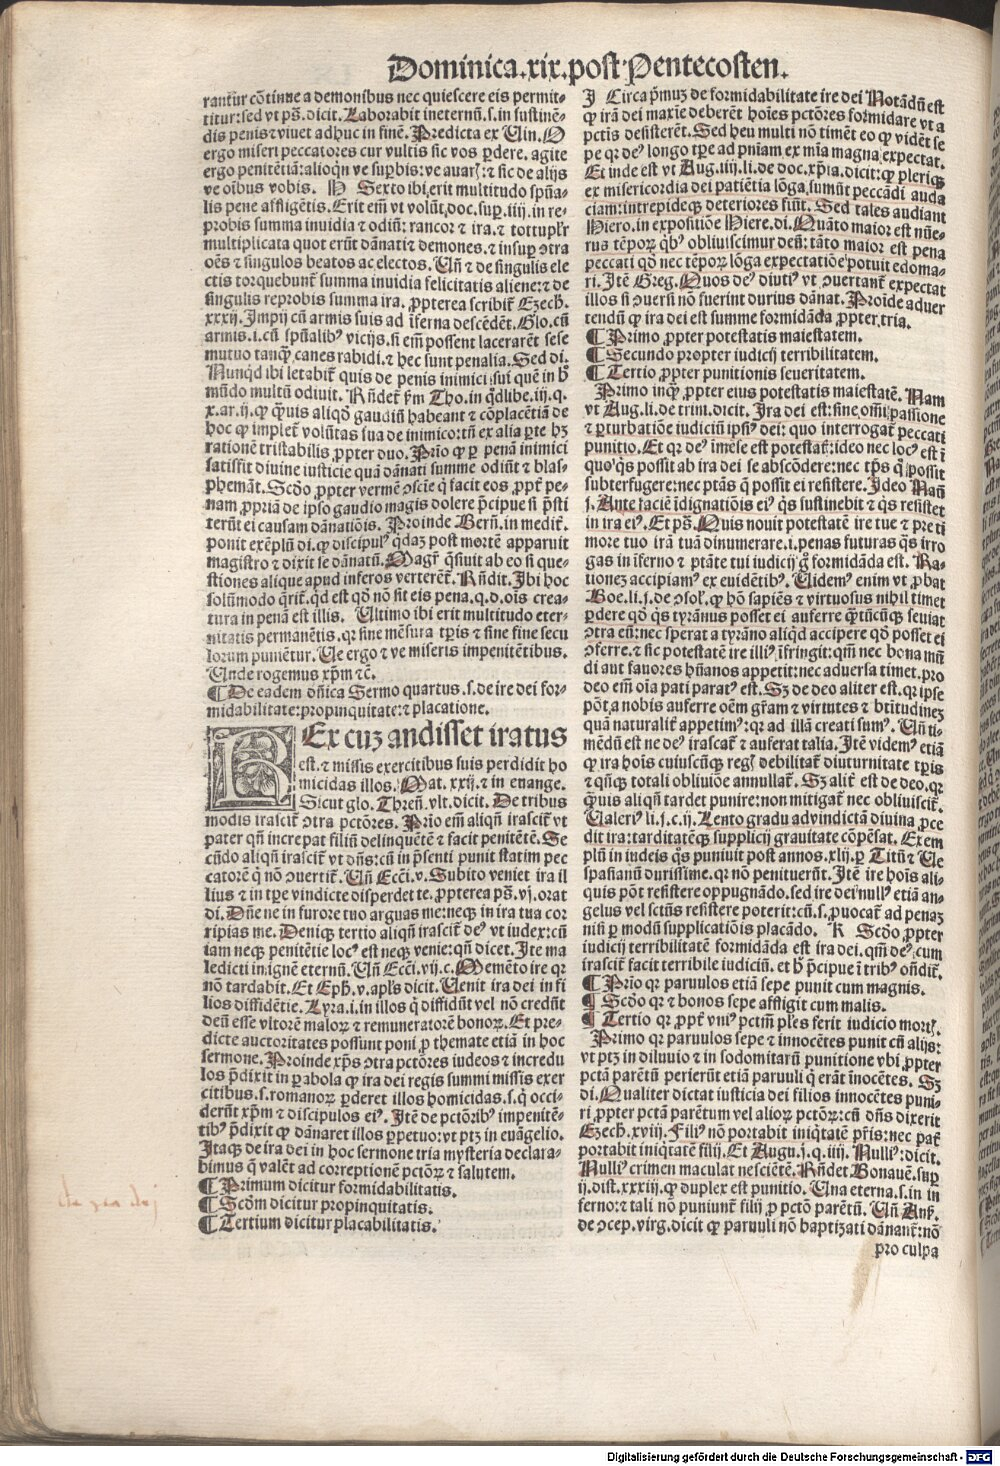 Dominica.xix.post Pentecosten.
rantur cõtinue a demonibus nec quiescere eis permit-
titur: sed vt ps̃. dicit. Laborabit ineternũ. s. in sustinẽ-
dis penis ⁊ viuet adhuc in finẽ. Predicta ex Uin. O
ergo miseri peccatores cur vultis sic vos ꝑdere. agite
ergo penitẽtiã: alioqñ ve supbis: ve auarꝭ: ⁊ sic de alijs
ve oĩbus vobis. N Sexto ibi erit multitudo spña-
lis pene affligẽtis. Erit em̃ vt volũt doc. suꝑ. iiij. in re-
probis summa inuidia ⁊ odiũ: rancor ⁊ ira. ⁊ tot tuplʼr
multiplicata quot erũt dãnati ⁊ demones. ⁊ insuꝑ ↄtra
oẽs ⁊ singulos beatos ac electos. Uñ ⁊ de singulis ele
ctis torquebunt̃ summa inuidia felicitatis aliene: ⁊ de
singulis reprobis summa ira. ꝓpterea scribit̃ Ezech.
xxxij. Impij cũ armis suis ad ĩferna descẽdẽt. Glo. cũ
armis. i. cũ spñalibꝰ vicijs. si em̃ possent lacerarẽt sese
mutuo tanq̃ canes rabidi. ⁊ hec sunt penalia. Sed di.
Nunqd ibi letabit̃ quis de penis inimici sui quẽ in h̃
mũdo multũ odiuit. Rñdet̃ ẜm Tho. in q̃dlibe. iij. q.
x. ar. ij. ꝙ q̃uis aliqõ gaudiũ habeant ⁊ cõplacẽtiã de
hoc ꝙ implet̃ volũtas sua de inimico: tñ ex alia ꝑte hꝫ
rationẽ tristabilis ꝓpter duo. Prio ꝙ ꝑ penã inimici
satisfit diuine iusticie quã dãnati summe odiũt ⁊ blas-
phemãt. Scðo ꝓpter vermẽ ↄsciẽ q̃ facit eos ꝓpt̃ pe-
nam ꝓpriã de ipso gaudio magis dolere p̃cipue si p̃sti
terũt ei causam dãnatiõis. Proinde Bern̄. in medit̃.
ponit exẽplũ di. ꝙ discipulꝰ q̃daꝫ post mortẽ apparuit
magistro ⁊ dixit se dãnatũ. Magr̃ q̃siuit ab eo si que-
stiones alique apud inferos verterẽt̃. Rñdit. Ibi hoc
solũmodo q̃rit̃. qd est qõ nõ sit eis pena. q. d. oĩs crea-
tura in penã est illis. Ultimo ibi erit multitudo eter-
nitatis permanẽtis. qr sine mẽsura tp̃is ⁊ sine fine secu
lorum punietur. Ue ergo ⁊ ve miseris impenitẽtibus.
Unde rogemus xp̃m ⁊c̃.
¶ De eadem dñica Sermo quartus. s. de ire dei for-
midabilitate: propinquitate: ⁊ placatione.
REx cuꝫ audisset iratus
est. ⁊ missis exercitibus suis perdidit ho
micidas illos. Mat. xxij. ⁊ in euange.
Sicut glo. Thren̄. vlt. dicit. De tribus
modis irascit̃ ↄtra pctõres. Prio em̃ aliqñ irascit̃ vt
pater qñ increpat filiũ delinquẽtẽ ⁊ facit penitẽtẽ. Se
cũdo aliqñ irascit̃ vt dñs: cũ in p̃senti punit statim pec
catorẽ q̃ nõ ↄuertit̃. Uñ Ecci. v. Subito veniet ira il
lius ⁊ in tp̃e vindicte disperdet te. ꝓpterea ps̃. vj. orat
di. Dñe ne in furore tuo arguas me: neqꝫ in ira tua cor
ripias me. Deniqꝫ tertio aliqñ irascit̃ deꝰ vt iudex: cũ
iam neqꝫ penitẽtie locꝰ est neqꝫ venie: qñ dicet. Ite ma
ledicti in ignẽ eternũ. Uñ Ecci. vij. c. Memẽto ire qr
nõ tardabit. Et Eph̃. v. apl̃s dicit. Uenit ira dei in fi
lios diffidẽtie. Lyra. i. in illos q̃ diffidũt vel nõ credũt
deũ esse vltorẽ maloꝝ ⁊ remuneratorẽ bonoꝝ. Et pre-
dicte auctoritates possunt poni ꝓ themate etiã in hoc
sermone. Proinde xp̃s ↄtra pctõres iudeos ⁊ incredu
los p̃dixit in ꝑabola ꝙ ira dei regis summi missis exer
citibus. s. romanoꝝ ꝑderet illos homicidas. s. q̃ occi-
derũt xp̃m ⁊ discipulos eiꝰ. Itẽ de pctõribꝰ impenitẽ-
tibꝰ p̃dixit ꝙ dãnaret illos ꝑpetuo: vt ptꝫ in euãgelio.
Itaqꝫ de ira dei in hoc sermone tria mysteria declara-
bimus q̃ valẽt ad correptionẽ pctõꝝ ⁊ salutem.
¶ Primum dicitur formidabilitatis.
¶ Scðm dicitur propinquitatis.
¶ Tertium dicitur placabilitatis.
I Circa p̃muꝫ de formidabilitate ire dei Notãdũ est
ꝙ irã dei maxĩe deberẽt hoĩes pctõres formidare vt a
pctĩs desisterẽt. Sed heu multi nõ timẽt eo ꝙ vidẽt se
pe qr deꝰ longo tp̃e ad pniam ex mĩa magna expectat.
Et inde est vt Aug. iiij. li. de doc. xp̃ia. dicit: ꝙ pleriqꝫ
ex misericordia dei patiẽtia lõga sumũt peccãdi auda
ciam: intrepideqꝫ deteriores fiũt. Sed tales audiant
Hiero. in expositiõe Hiere. di. Quãto maior est nũe-
rus tẽpoꝝ qbꝰ obliuiscimur deũ: tãto maior est pena
peccati qõ nec tẽpoꝝ lõga expectatiõe potuit edoma-
ri. Itẽ Greg. Quos deꝰ diutiꝰ vt ↄuertant̃ expectat
illos si ↄuersi nõ fuerint durius dãnat. Proĩde aduer
tendũ ꝙ ira dei est summe formidãda ꝓpter tria.
¶ Primo ꝓpter potestatis maiestatem.
¶ Secundo propter iudicij terribilitatem.
¶ Tertio ꝓpter punitionis seueritatem.
Primo inqꝫ ꝓpter eius potestatis maiestatẽ. Nam
vt Aug. li. de trini. dicit. Ira dei est: sine oĩ passione
⁊ ꝑturbatiõe iudiciũ ipsiꝰ dei: quo interrogat̃ peccati
punitio. Et qr deꝰ ĩmẽse est potestat̃: ideo nec locꝰ est ĩ
quo q̃s possit ab ira dei se abscõdere: nec tp̃s q̃ possit
subterfugere: nec ptãs q̃ possit ei resistere. Ideo Nau̅
j. Ante faciẽ ĩdignatiõis eiꝰ q̃s sustinebit ⁊ q̃s resistet
in ira eiꝰ. Et ps̃. Quis nouit potestatẽ ire tue ⁊ pre ti
more tuo irã tuã dinumerare. i. penas futuras q̃s irro
gas in ĩferno ⁊ ptãte tui iudicij g̃ formidãda est. Ra-
tionez accipiamꝰ ex euidẽtibꝰ. Uidemꝰ enim vt ꝓbat
Boe. li. j. de ↄsol̃. ꝙ hõ sapiẽs ⁊ virtuosus nihil timet
ꝑdere qõ q̃s tyrãnus posset ei auferre q̃tũcũqꝫ seuiat
ↄtra eũ: nec sperat a tyrãno aliqd accipere qõ posset ei
ↄferre. ⁊ sic potestatẽ ire illiꝰ ĩfringit: qm̃ nec bona mũ
di aut fauores hũanos appetit: nec aduersa timet. pro
deo em̃ oĩa pati paratꝰ est. Sꝫ de deo aliter est. qr ipse
põt a nobis auferre oẽm gr̃am ⁊ virtutes ⁊ btĩtudineꝫ
quã naturalit̃ appetimꝰ: qr ad illã creati sumꝰ. Uñ ti-
mẽdũ est ne deꝰ irascat̃ ⁊ auferat talia. Itẽ videmꝰ etiã
ꝙ ira hoĩs cuiuscũqꝫ regꝭ debilitat̃ diuturnitate tp̃is
⁊ qñqꝫ totali obliuiõe annullat̃. Sꝫ alit̃ est de deo. qr
q̃uis aliqñ tardet punire: non mitigat̃ nec obliuiscit̃.
Ualeriꝰ li. j. c. ij. Lento gradu ad vindictã diuina ꝓce
dit ira: tarditatẽqꝫ supplicij grauitate cõpẽsat. Exem
plũ in iudeis q̃s puniuit post annos. xlij. ꝑ Titũ ⁊ Ue
spasianũ durissime. qr nõ penituerũt. Itẽ ire hoĩs ali-
quis põt resistere oppugnãdo. sed ire dei nullꝰ etiã an-
gelus vel sctũs resistere poterit: cũ. s. ꝓuocat̃ ad penaꝫ
nisi ꝑ modũ supplicatiõis placãdo. K Scðo ꝓpter
iudicij terribilitatẽ formidãda est ira dei. qm̃ deꝰ cum
irascit̃ facit terribile iudiciũ. et h̃ p̃cipue ĩ tribꝰ oñdit̃.
¶ Prio qr paruulos etiã sepe punit cum magnis.
¶ Scðo qr ⁊ bonos sepe affligit cum malis.
¶ Tertio qr ꝓpt̃ vniꝰ pctm̃ ples ferit iudicio mortꝭ.
Primo qr paruulos sepe ⁊ innocẽtes punit cũ alijs:
vt ptꝫ in diluuio ⁊ in sodomitarũ punitione vbi ꝓpter
pctã parẽtũ perierũt etiã paruuli q̃ erãt ĩnocẽtes. Sꝫ
di. Qualiter dictat iusticia dei filios innocẽtes puni-
ri ꝓpter pctã parẽtum vel alioꝝ pctõꝝ: cũ dñs dixerit
Ezech. xviij. Filiꝰ nõ portabit iniq̃tatẽ pr̃is: nec pat̃
portabit iniq̃tatẽ filij. Et Augu. j. q. iiij. Nulliꝰ: dicit.
Nulliꝰ crimen maculat nesciẽtẽ. Rñdet Bonauẽ. suꝑ
ij. dist. xxxiij. ꝙ duplex est punitio. Una eterna. s. in in
ferno: ⁊ tali nõ puniunt̃ filij ꝓ pctõ parẽtũ. Uñ Anẜ.
de ↄcep. virg. dicit ꝙ paruuli nõ baptizati dãnant̃: nõ
pro culpa
Digitalisierung gefördert durch die Deutsche Forschungsgemeinschaft - DFG